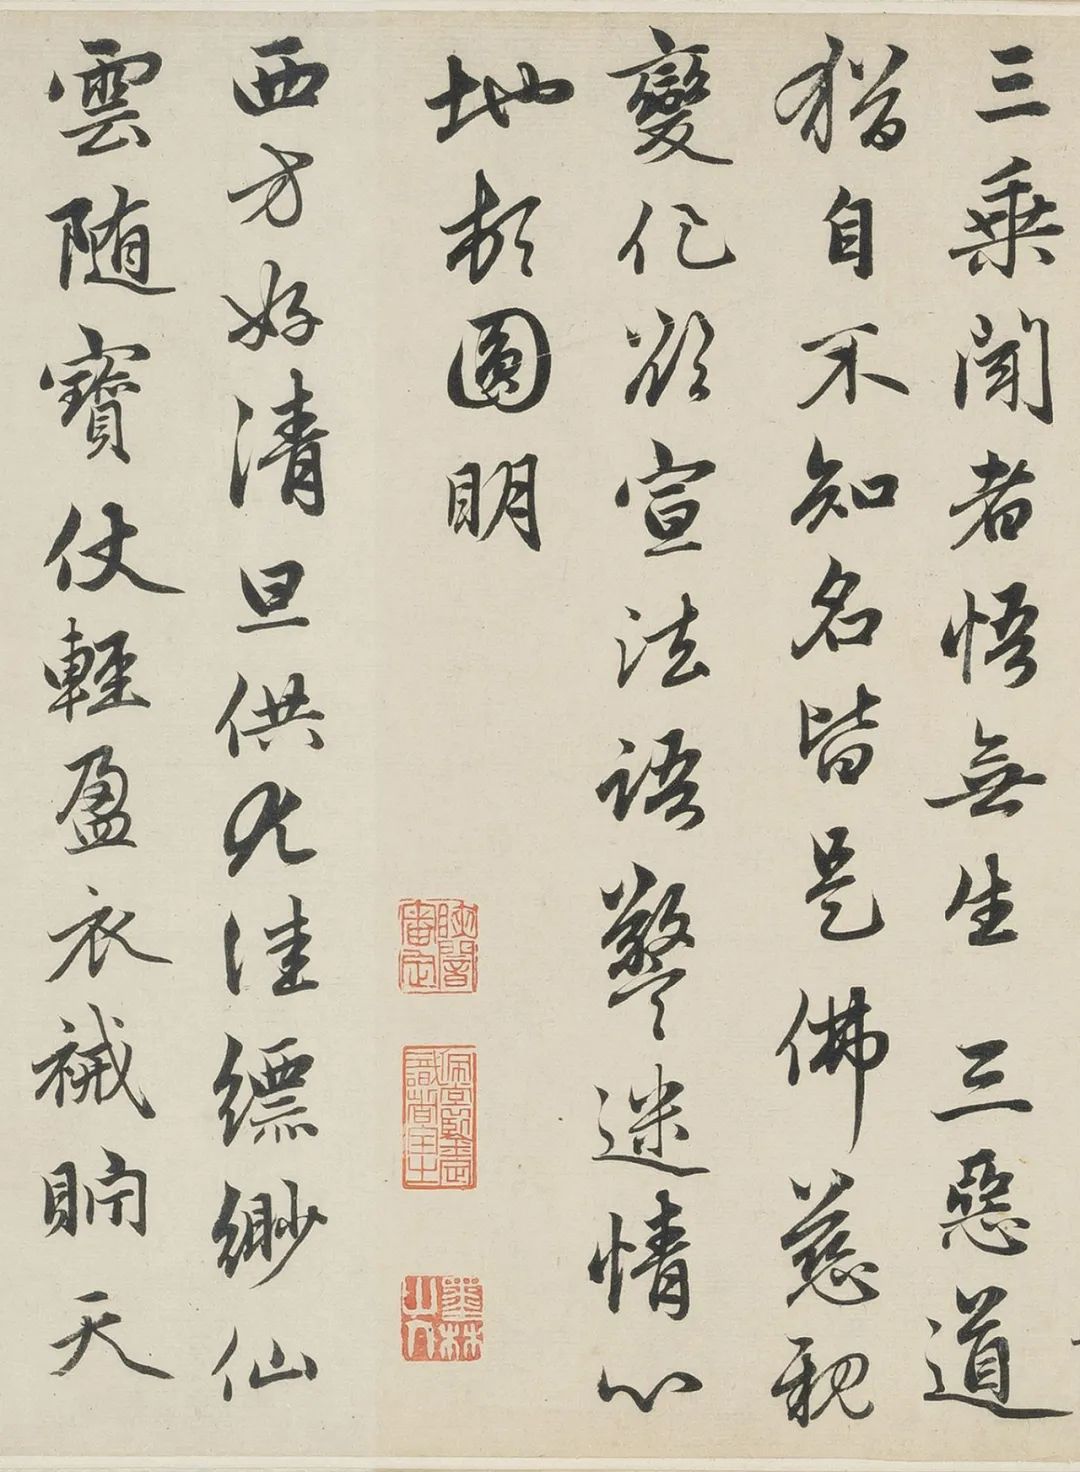 三乗聞者悟無生三惡道
猶自不知名皆是佛慈親
變化欲宣法語警迷情心
地頓圓明
西方好清旦供尤佳縹緲仙
雲随寶仗輕盈衣祴貯天